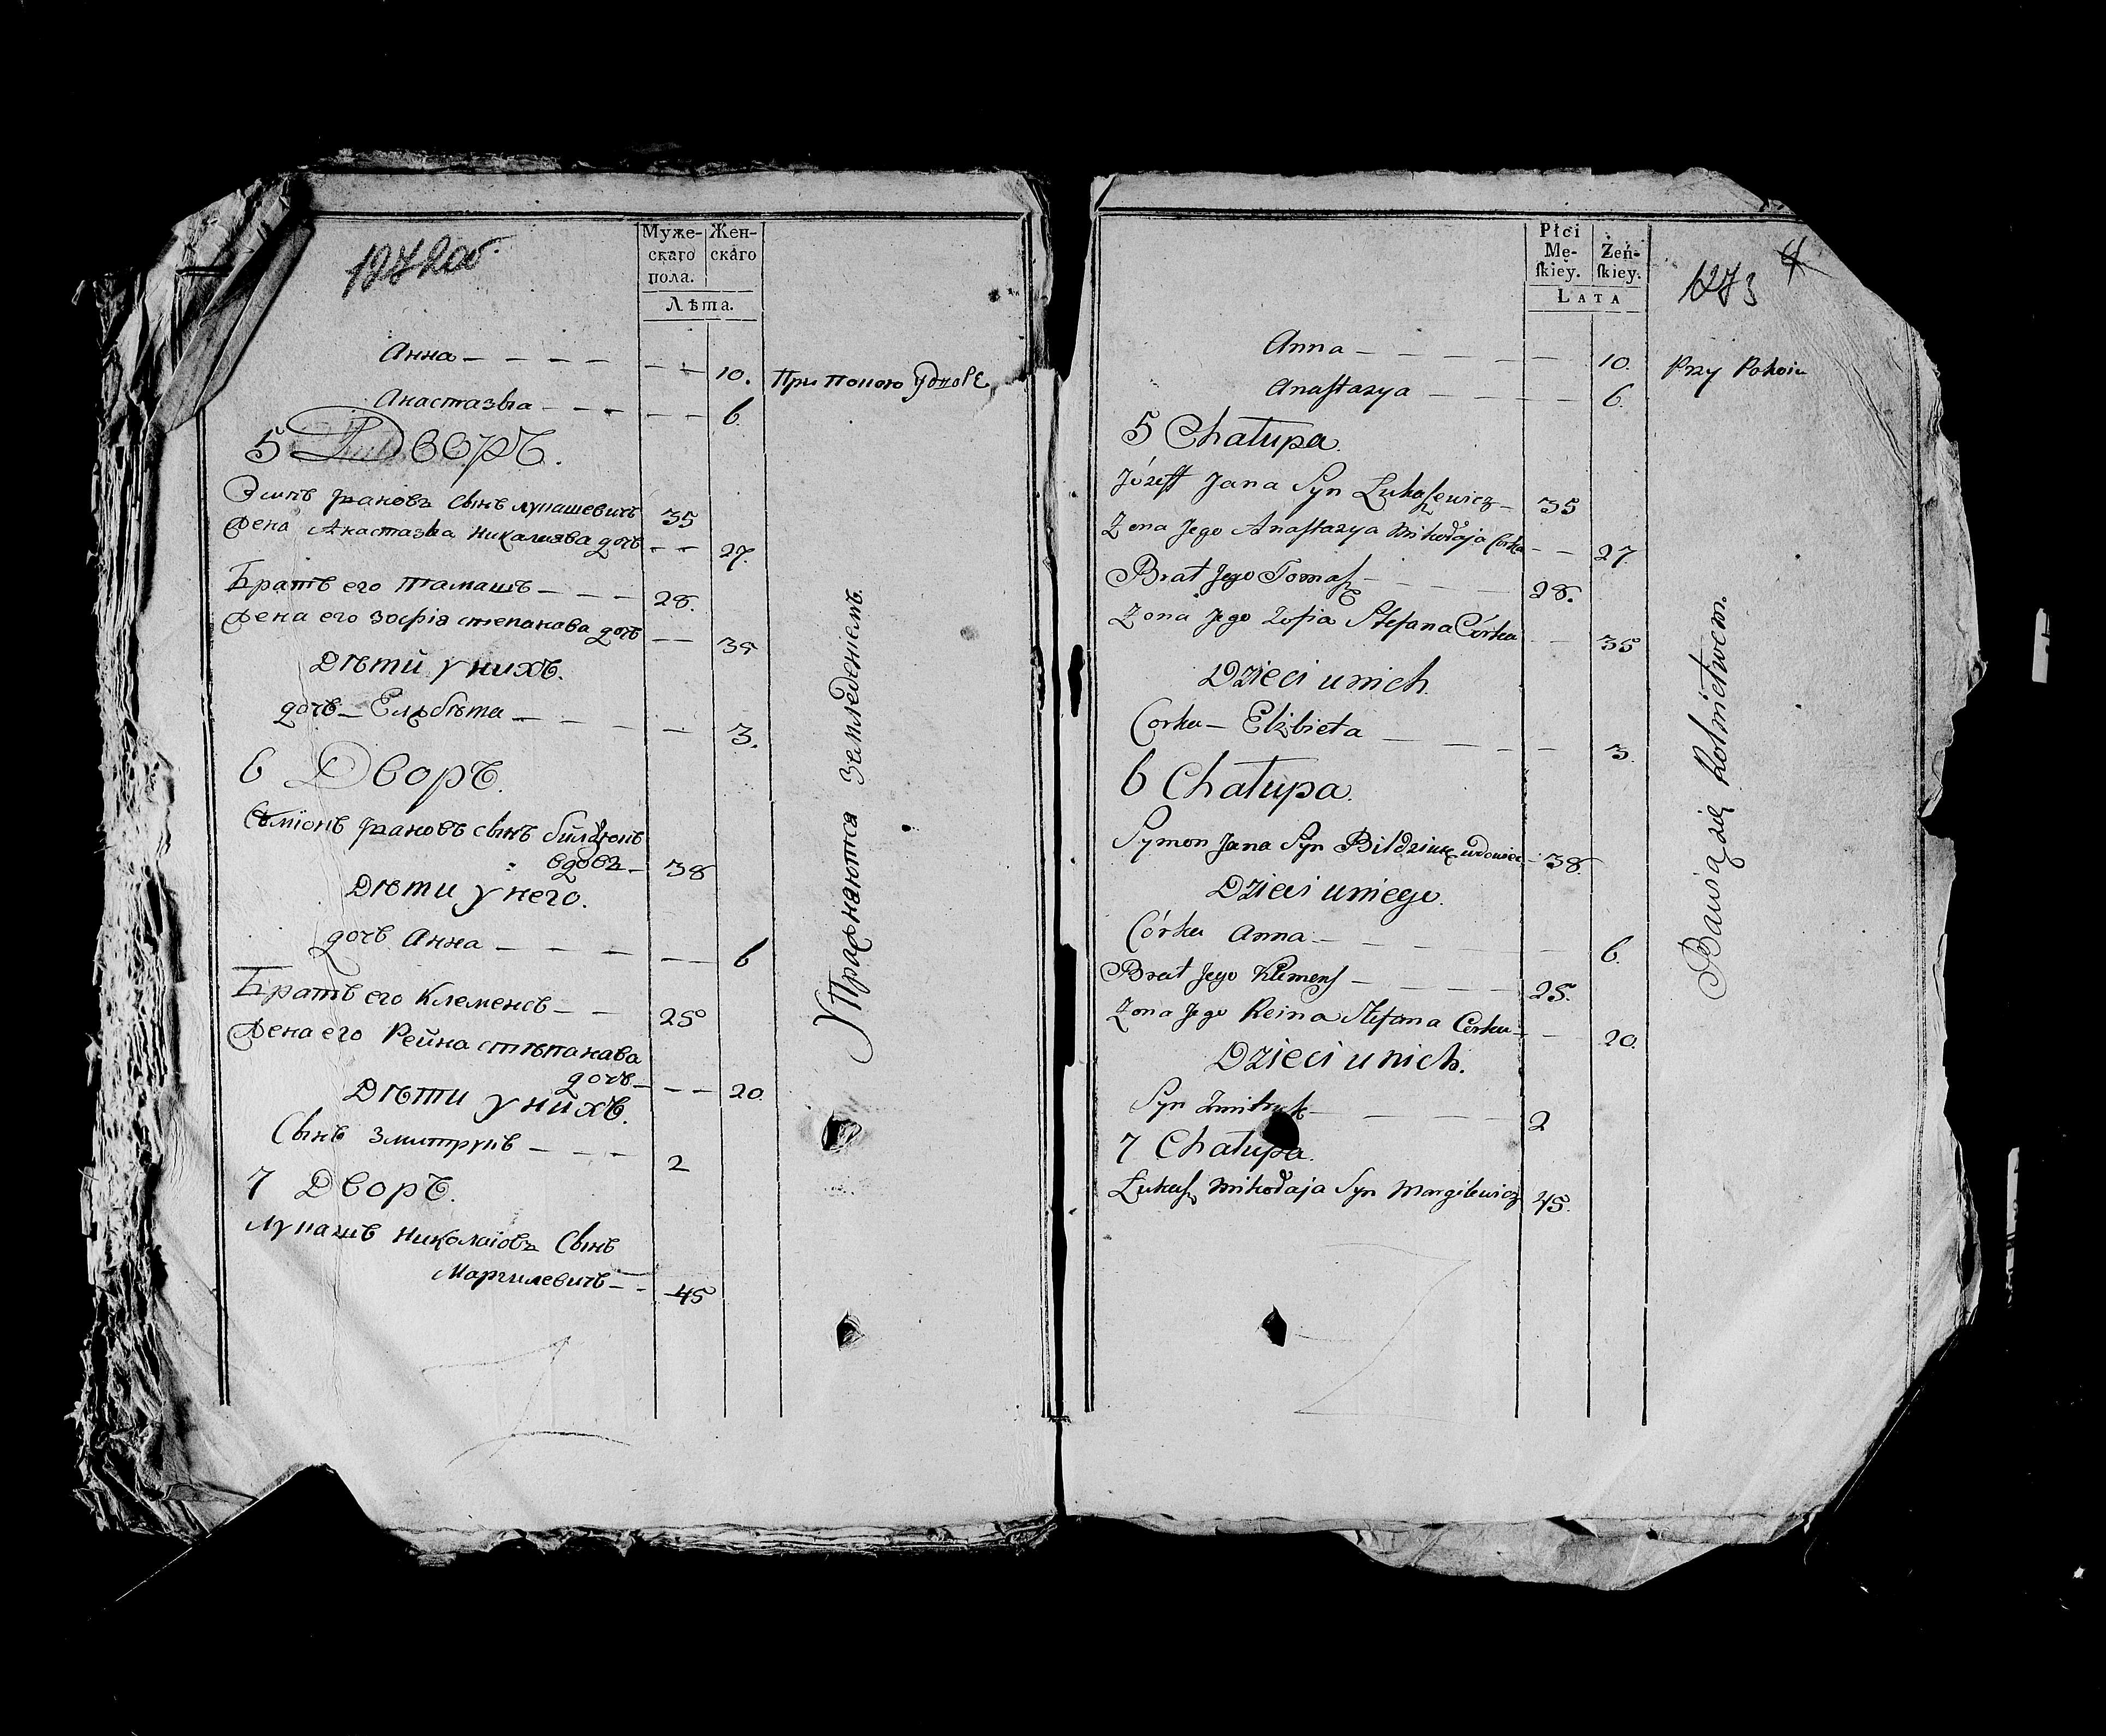 1272об.
Муже-
скаго
пола.
Жен-
скаго
Лѣта.
Анна — — — — — — 10.
Анастазыа — — — — — 6.
5 Дворъ.
Яновъ Сынъ лукашевичъ 35
Анастазыа дочь — — 27.
Братъ его тамашъ — — — 28.
жена его Зофія степанава дочь — — 35
Дѣти у нихъ.
дочь — Елзбѣта — — — — — 3.
6 Дворъ.
Яновъ сынъ
вдовъ — 38
Дѣти у него.
дочь Анна — — — — — 6
Братъ его Клеменсъ — — 25
жена его Рейна стѣпанава
дочь — — — 20.
Дѣти у нихъ.
Сынъ Змитрукъ — — — 2
7 Дворъ.
Лукашъ Николаіовъ Сынъ
Маргилевичъ — — 45
При
Упражняются
Płci
Mę-
ſkiey.
Żeń-
ſkiey.
LATA
1273
4
Anna — — — — — 10.
Anaſtazya — — — — 6.
Przy Pokoiu
5 Chałupa.
Józeff Jana Syn Łukaſzewicz — 35
Zona Jego Anaſtazya Mikołaja Corka — — 27.
Brat Jego Tomaſz — — — — 28.
Zona Jego Zofia Stefana Córka — 35
Dzieci u nich.
Corka — Elżbieta — — — — 3.
6 Chałupa.
Symon Jana Syn Bildziuk wdowiec — 38.
Dzieci u niego.
Córka Anna — — — — 6.
Brat Jego Klemens — — — — 25.
Zona Jego Reina Stefana Corka — — 20.
Dzieci u nich.
Syn Zmitruk — — — 2
7 Chałupa.
Łukaſz Mikołaja Syn Margilewicz 45.
Bawią się Rolnictwem.